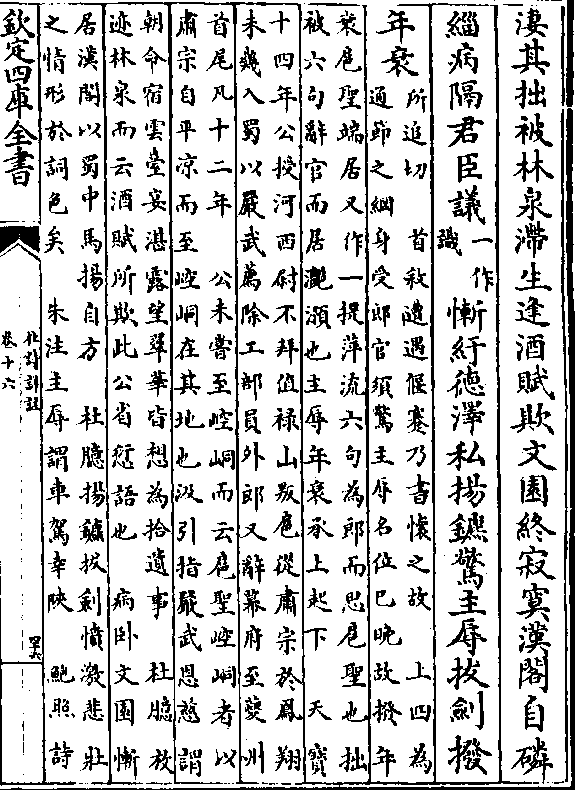 淒其拙被林泉滯生逢酒賦欺文園終寂寞漢閣自磷
緇病隔君臣議一作識慚紆德澤私揚鑣驚主辱拔劍撥
年衰
所追切　首敘遭遇偃蹇乃書懷之故　上四為
通節之綱身受郎官須驚主辱名位已晚故撥年
衰扈聖端居又作一提萍流六句為郎而思扈聖也拙
被六句辭官而居灧澦也主辱年衰承上起下　天寶
十四年公授河西尉不拜值祿山叛扈從肅宗於鳳翔
未幾入蜀以嚴武薦除工部員外郎又辭幕府至夔州
首尾凡十二年　公未嘗至崆峒而云扈聖崆峒者以
肅宗自平凉而至崆峒在其地也汲引指嚴武恩慈謂
朝命宿雲臺宴湛露望翠華皆想為拾遺事　杜臆放
迹林泉而云酒賦所欺此公省愆語也　病卧文園慚
居漢閣以蜀中馬揚自方　杜臆揚鑣拔劍憤激悲壯
之情形於詞色矣　朱注主辱謂車駕幸陜　鮑照詩
欽定四庫全書
杜詩詳註
卷十六
四十六